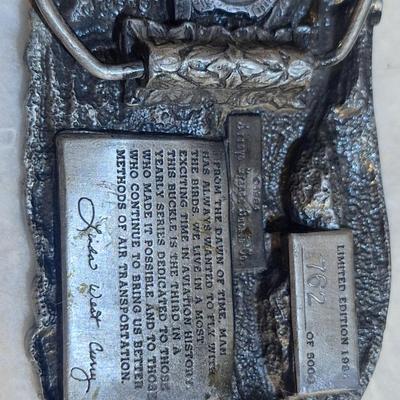 FROM THE DAWN OF TIME, MAN
HAS ALWAYS WANTED TO FLY WITH
THE BIRDS. WE LIVE IN A MOST
EXCITING TIME IN AVIATION HISTORY.
THIS BUCKLE IS THE THIRD IN A
YEARLY SERIES DEDICATED TO THOSE
WHO MADE IT POSSIBLE AND TO THOSE
WHO CONTINUE TO BRING US BETTER
METHODS OF AIR TRANSPORTATION.
Linda West
LIMITED EDITION 198
762
OF 5000